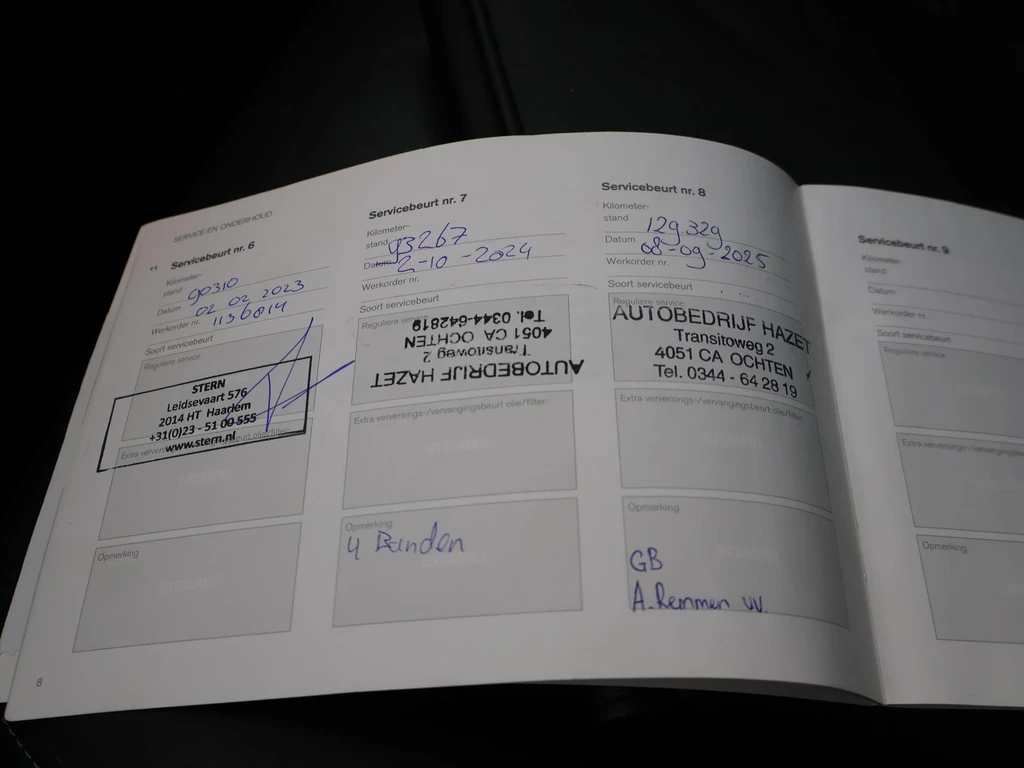 SERVICE EN ONDERHOUD
Servicebeurt nr. 6
Kilometer-
stand 90310
Datum 02 02 2023
Werkorder nr. 1136014
Soort servicebeurt
Reguliere service
STERN
Leidsevaart 576
2014 HT Haarlem
+31(0)23 - 51 00 555
www.stern.nl
Opmerking
8
Servicebeurt nr. 7
Kilometer-
stand 93267
Datum 2-10-2024
Werkorder nr.
Soort servicebeurt
Reguliere service
AUTOBEDRIJF HAZET
Transitoweg 2
4051 CA OCHTEN
Tel. 0344-642819
Extra verversings-/vervangingsbeurt olie/filter:
Opmerking
4 Banden
Servicebeurt nr. 8
Kilometer-
stand 129.329
Datum 08-09-2025
Werkorder nr.
Soort servicebeurt
Reguliere service
AUTOBEDRIJF HAZET
Transitoweg 2
4051 CA OCHTEN
Tel. 0344 - 64 28 19
Extra verversings-/vervangingsbeurt olie/filter:
Opmerking
GB
A. Remmen vv.
Servicebeurt nr. 9
Kilometer-
stand
Datum
Werkorder nr.
Soort servicebeurt
Reguliere service
Extra verversings-/vervangingsbeurt
Opmerking